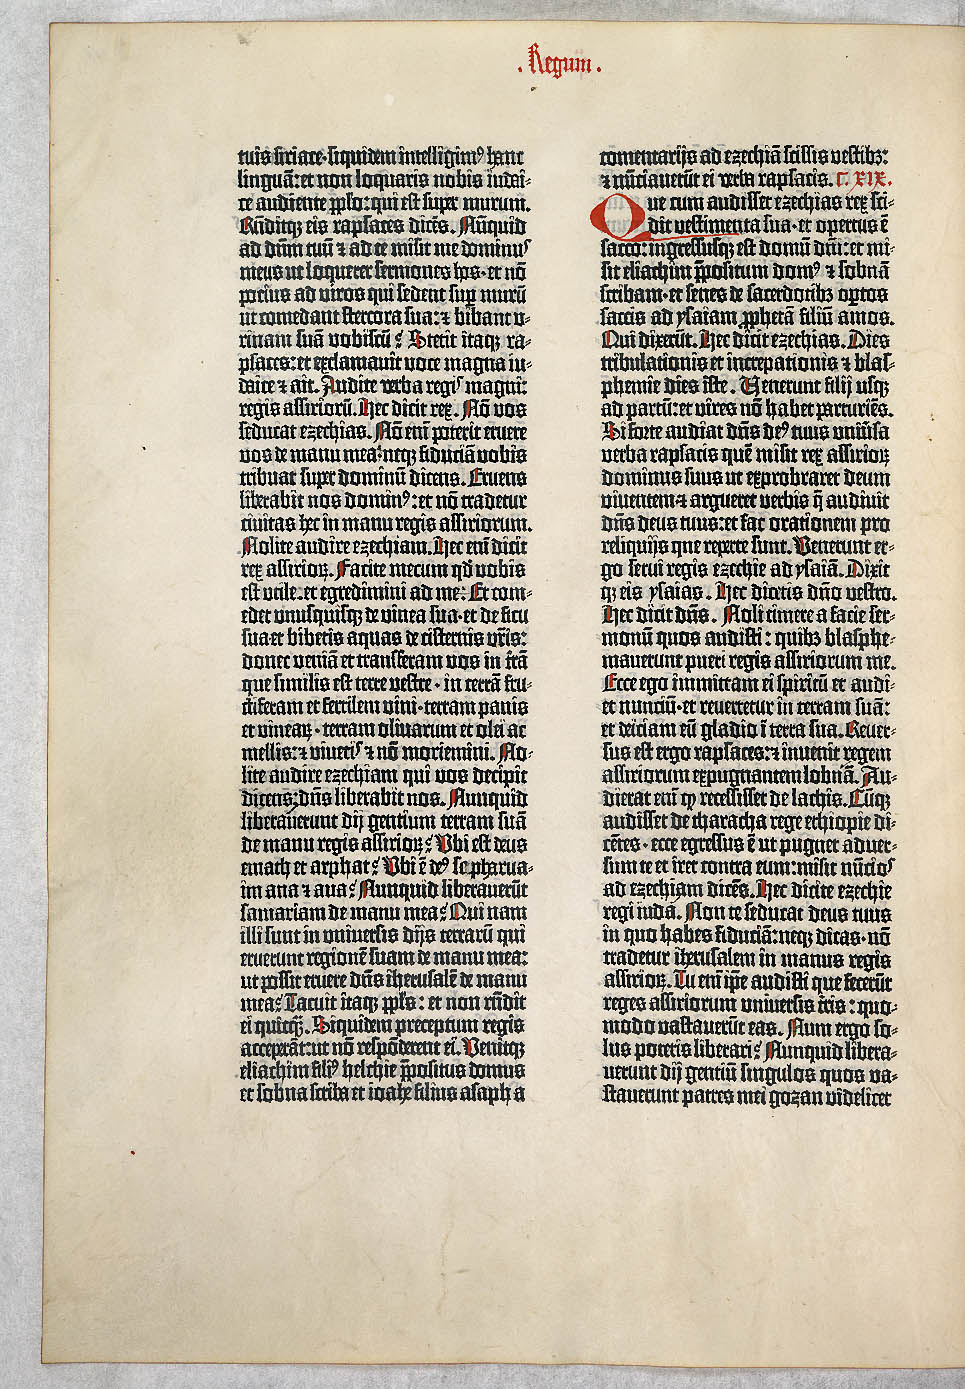 . Regum .
tuis siriace·siquidem intelligimꝰ hanc
linguā: et non loquaris nobis iudai-
ce audiente ꝓplo: qui est super murum.
Rn̄ditq; eis rapsaces dicēs. Nūquid
ad dn̄m tuū ⁊ ad te misit me dominus
meus ut loquerer sermones hos·et nō
potius ad viros qui sedent sup̱ murū
ut comedant stercora sua: ⁊ bibant v-
rinam suā vobiscū? Stetit itaq; ra-
psaces: et exclamauit voce magna iu-
daice ⁊ ait. Audite verba regis magni:
regis assirioꝝ. Hec dicit rex. Nō vos
seducat ezechias. Nō em̄ poterit eruere
vos de manu mea: neq; fiduciā vobis
tribuat super dominū dicens. Eruens
liberabit nos dominꝰ: et nō tradetur
ciuitas hec in manu regis assiriorum.
Nolite audire ezechiam. Hec em̄ dicit
rex assirioꝝ. Facite mecum qd̄ vobis
est vtile·et egredimini ad me: Et com-
edet vnusquisq; de vinea sua·et de ficu
sua et bibetis aquas de cisternis vr̄is:
donec veniā et transferam vos in trā̄
que similis est terre vestre·in terrā fru-
ctiferam et fertilem vini·terram panis
et vineaꝝ·terram oliuarum et olei ac
mellis: ⁊ viuetis ⁊ nō moriemini. No-
lite audire ezechiam qui vos decipit
dicens: dn̄s liberabit nos. Nunquid
liberauerunt dij gentium terram suā
de manu regis assirioꝝ? Vbi est deus
emach et arphat? Vbi ē deꝰ sepharua-
im ana ⁊ aua? Nunquid liberauerūt
samariam de manu mea? Qui nam
illi sunt in vniuersis dijs terrarū qui
eruerunt regionē suam de manu mea:
ut possit eruere dn̄s iherusalē de manu
mea? Tacuit itaq; ppl̄s: et non rn̄dit
ei quicq̄. Siquidem preceptum regis
acceperāt: ut nō respōderent ei. Venitq;
eliachim filiꝰ helchie p̄positus domus
et sobna scriba et ioahe filius asaph a
comentarijs ad ezechiā scissis vestibꝫ:
⁊ nūciauerūt ei verba rapsacis. C. XIX.
Que cum audisset ezechias rex sci-
dit vestimenta sua·et opertus ē
sacco: ingressusq; est domū dn̄i: et mi-
sit eliachim p̄positum domꝰ ⁊ sobnā
scribam·et senes de sacerdotibꝫ optos
saccis ad ysaiam ꝓphetā filiū amos.
Qui dixerūt. Hec dicit ezechias. Dies
tribulationis et increpationis ⁊ blas-
phemie dies iste. Venerunt filij usq;
ad partū: et vires nō habet parturiēs.
Si forte audiat dn̄s deꝰ tuus vniūsa
verba rapsacis quē misit rex assirioꝝ
dominus suus ut exprobraret deum
viuentem ⁊ argueret verbis q̄ audiuit
dn̄s deus tuus: et fac orationem pro
reliquijs que reperte sunt. Venerunt er-
go serui regis ezechie ad ysaiā. Dixit
q; eis ysaias. Hec dicetis dn̄o vestro.
Hec dicit dn̄s. Noli timere a facie ser-
monū quos audisti: quibꝫ blasphe-
mauerunt pueri regis assiriorum me.
Ecce ego immittam ei spiritū et audi-
et nunciū·et reuertetur in terram suā:
et deiciam eū gladio ī terra sua. Reuer-
sus est ergo rapsaces: ⁊ inuenit regem
assiriorum expugnantem lobnā. Au-
dierat em̄ ꝙ recessisset de lachis. Cūq;
audisset de tharacha rege ethiopie di-
cētes·ecce egressus ē ut pugnet aduer-
sum te et iret contra eum: misit nūcios
ad ezechiam dicēs. Hec dicite ezechie
regi iuda. Non te seducat deus tuus
in quo habes fiduciā: neq; dicas·nō
tradetur iherusalem in manus regis
assirioꝝ. Tu em̄ ip̄e audisti que fecerūt
reges assiriorum vniuersis trīs: quo-
modo vastauerūt eas. Num ergo so-
lus poteris liberari? Nunquid libera-
uerunt dij gentiū singulos quos va-
stauerunt patres mei gozan videlicet